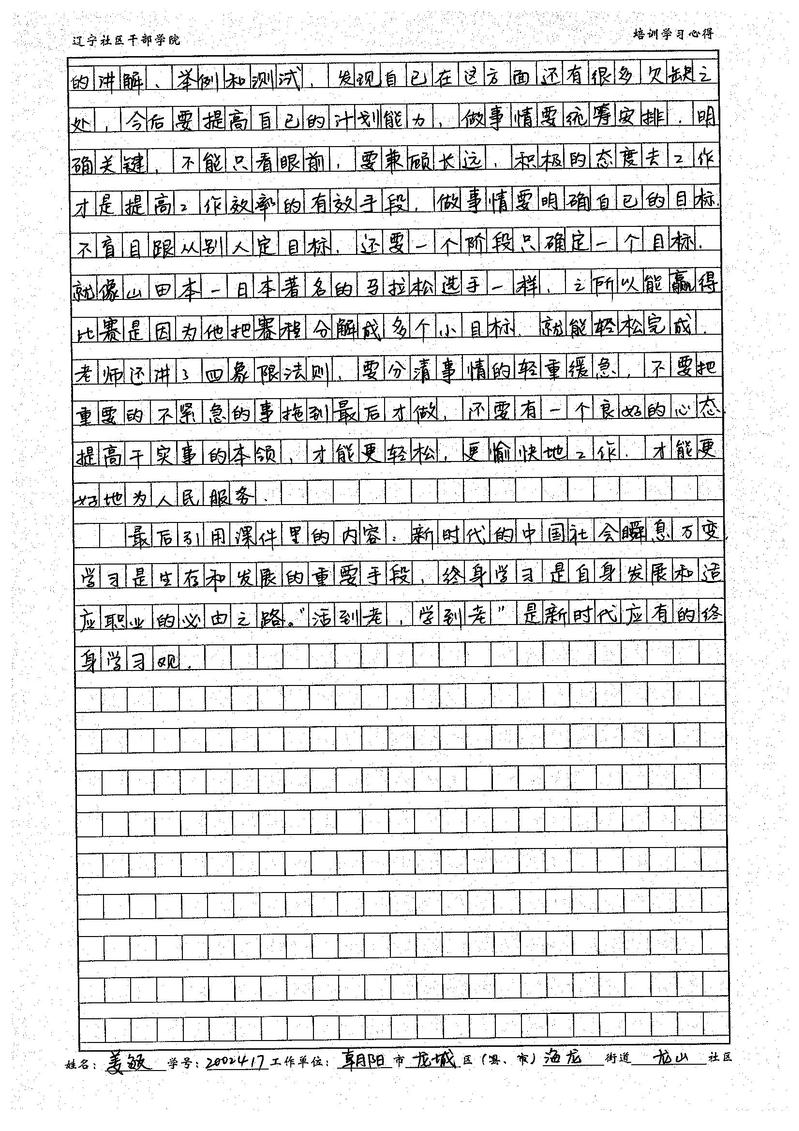 辽宁社区干部学院 培训学习心得
的讲解、举例和测试，发现自己在这方面还有很多欠缺之
处，今后要提高自己的计划能力，做事情要统筹安排，明
确关键，不能只看眼前，要兼顾长远，积极的态度去工作
才是提高工作效率的有效手段，做事情要明确自己的目标.
不盲目跟从别人定目标，还要一个阶段只确定一个目标.
就像山田本一日本著名的马拉松选手一样，之所以能赢得
比赛是因为他把赛程分解成多个小目标.就能轻松完成.
老师还讲了四象限法则，要分清事情的轻重缓急，不要把
重要的不紧急的事拖到最后才做，还要有一个良好的心态
提高干实事的本领，才能更轻松，更愉快地工作.才能更
好地为人民服务.
最后引用课件里的内容：新时代的中国社会瞬息万变.
学习是生存和发展的重要手段，终身学习是自身发展和适
应职业的必由之路。“活到老，学到老”是新时代应有的终
身学习观.
姓名：姜敏 学号：2002417 工作单位：朝阳市龙城区（县、市）海龙街道龙山社区